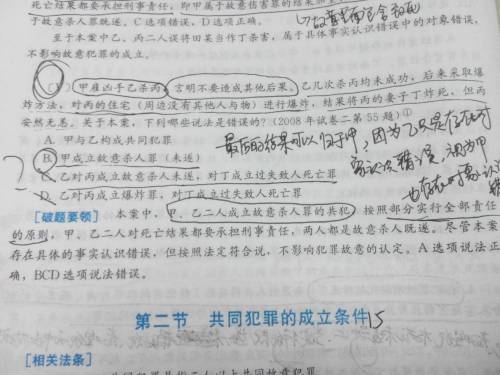 死亡结果都要承担刑事责任，即甲属于故意伤害罪的结果加
于故意杀人罪既遂。C选项错误，D选项正确。
至于本案中乙、丙二人误将田某当作丁杀害，属于具体事实认识错误中的对象错误，
不影响故意犯罪的成立。
甲雇凶手乙杀丙，言明不要造成其他后果。乙几次杀丙均未成功，后来采取爆
炸方法，对丙的住宅（周边没有其他人与物）进行爆炸，结果将丙的妻子丁炸死，但丙
安然无恙。关于本案，下列哪些说法是错误的？（2008年试卷二第55题）①
A. 甲与乙构成共同犯罪
最后的结果可以归于甲，因为乙只是存在对
B. 甲成立故意杀人罪（未遂）
?
C. 乙对丙成立故意杀人罪未遂，对丁成立过失致人死亡罪
D. 乙对丙成立爆炸罪，对丁成立过失致人死亡罪
【破题要领】 本案中，甲、乙二人成立故意杀人罪的共犯，按照部分实行全部责任
的原则，甲、乙二人对死亡结果都要承担刑事责任，两人都是故意杀人既遂。尽管本案
存在具体的事实认识错误，但按照法定符合说，不影响犯罪故意的认定。A选项说法正
确，BCD选项说法错误。
第二节 共同犯罪的成立条件 15
【相关法条】